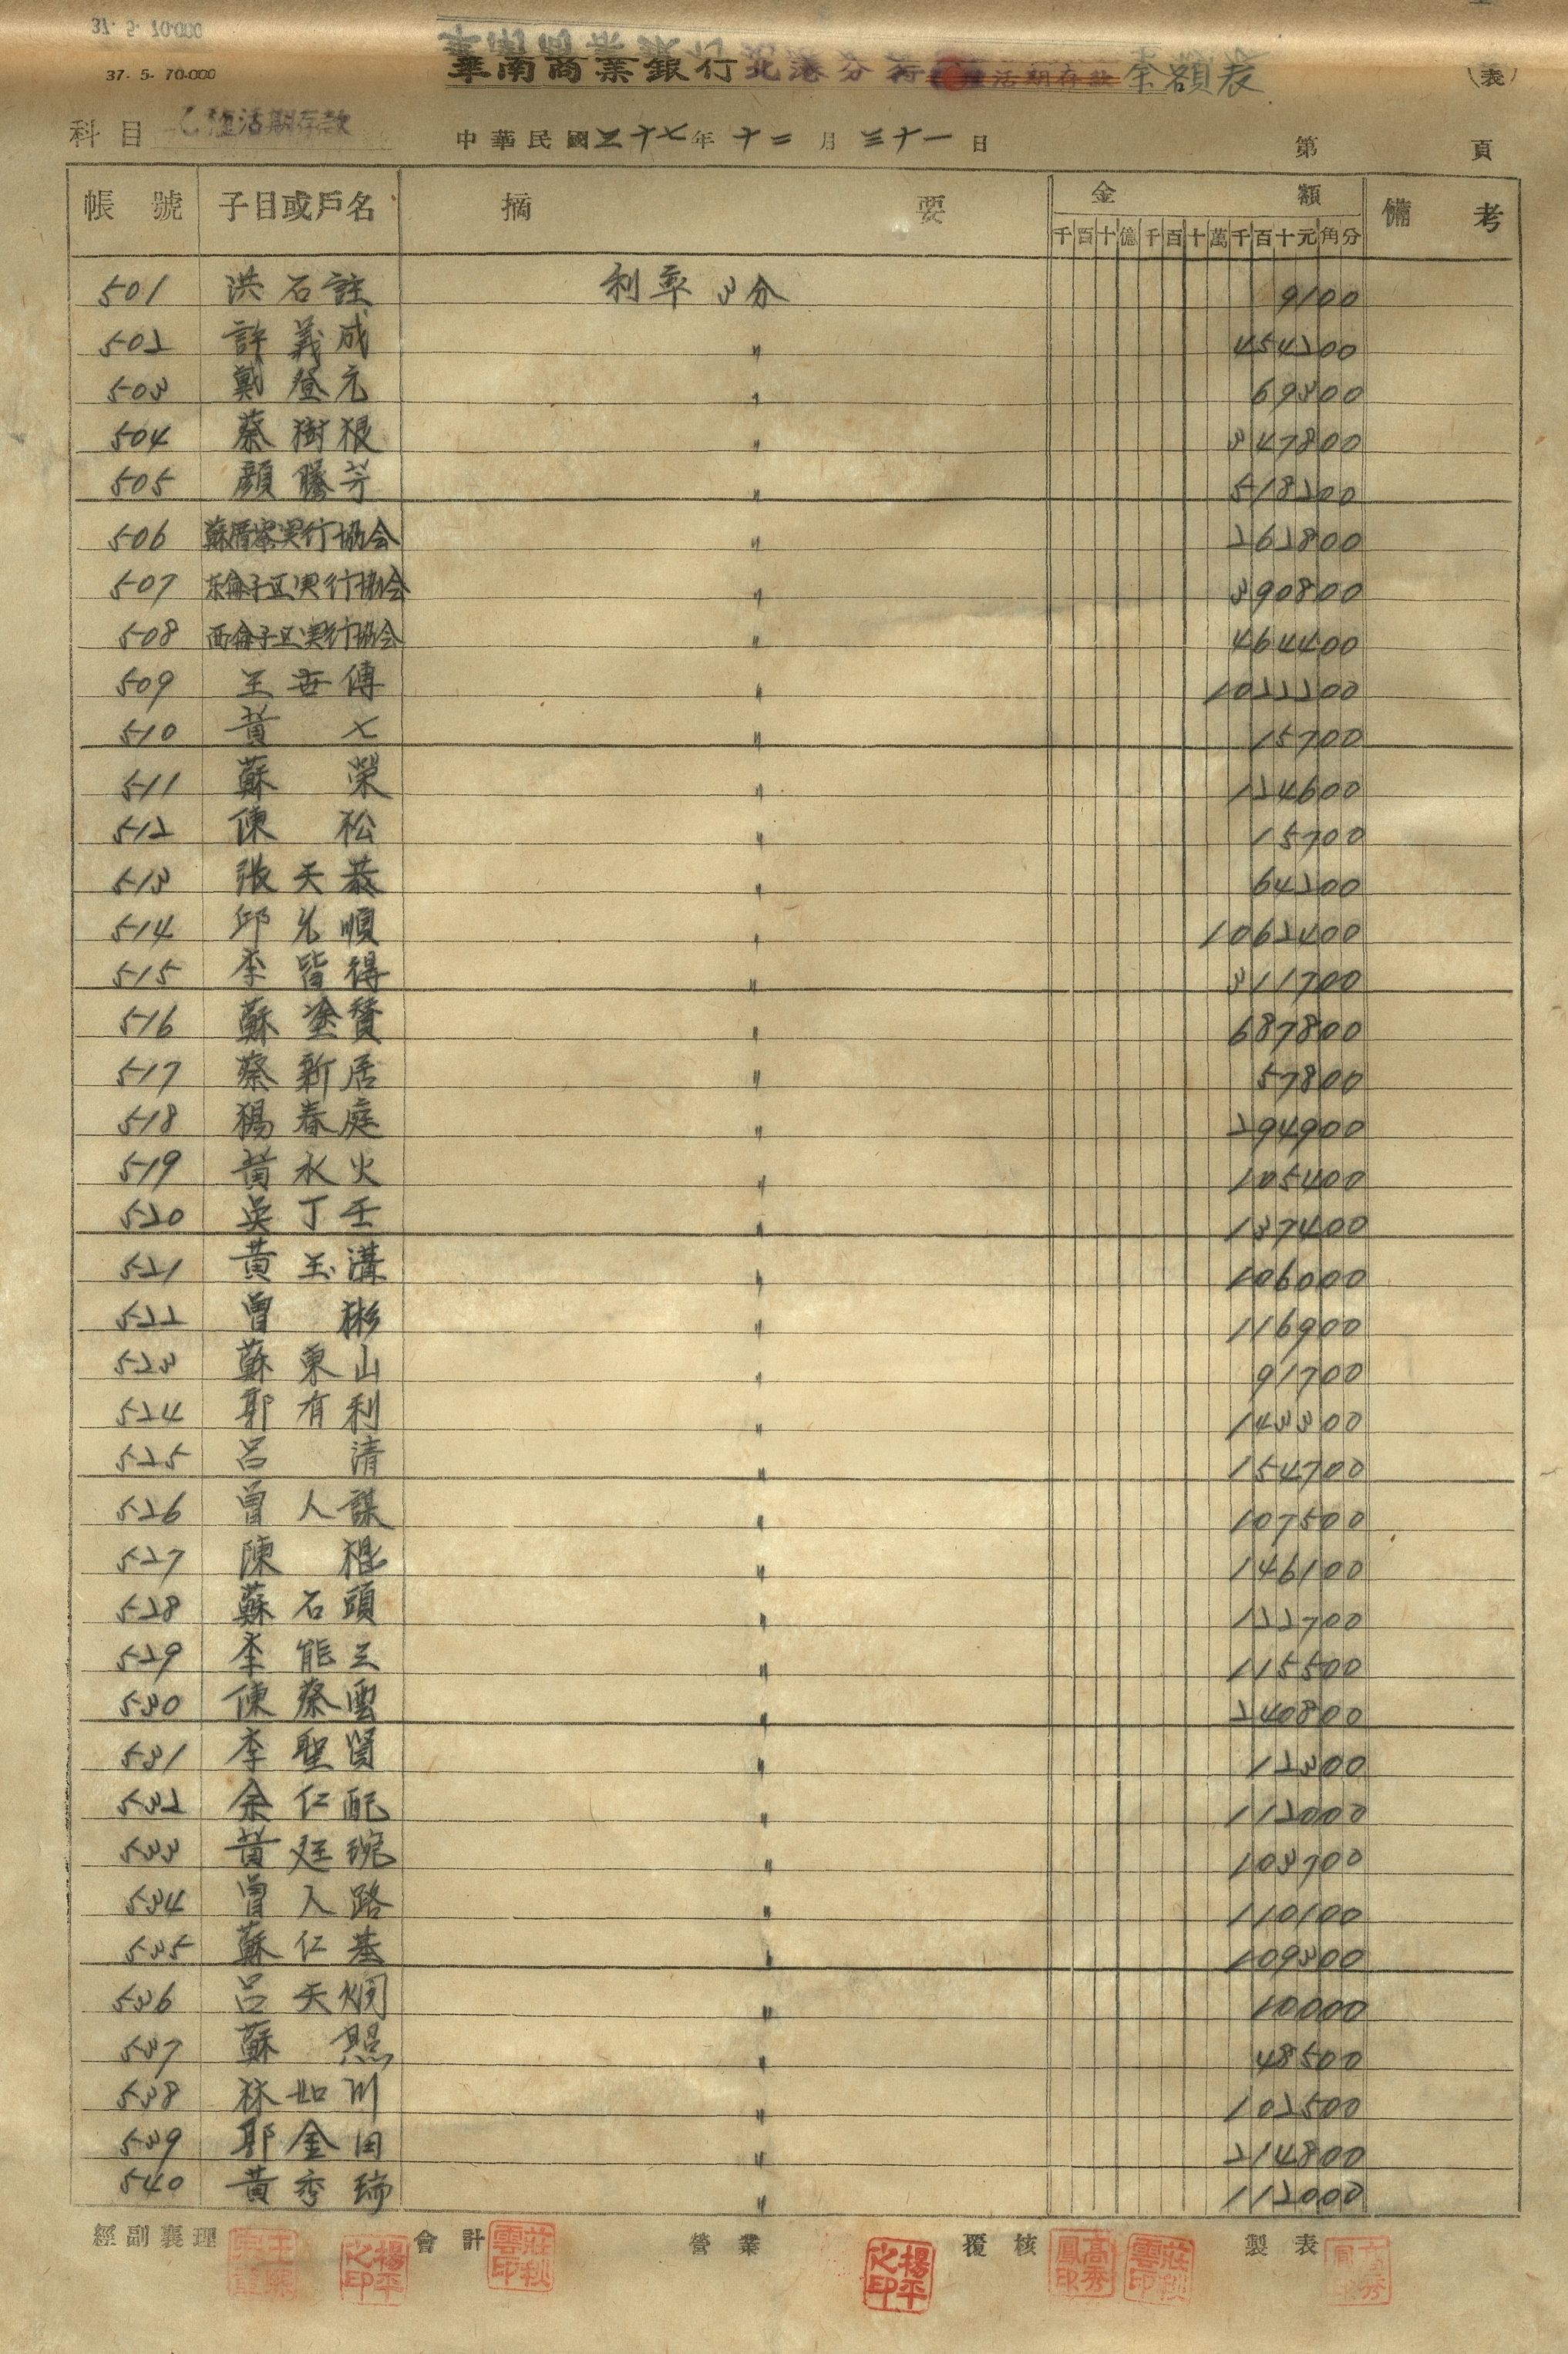 37. 5. 70.000
華南商業銀行北港分行 活期存款 余額表
(表)
科目 乙種活期存款 中華民國三十七年十二月三十一日 第 頁
帳號 子目或戶名 摘要 金額 備考
千百十億千百十萬千百十元角分
501 洪石註 利率3分 9100
502 許義成 〃 454200
503 戴登元 〃 69300
504 蔡樹根 〃 347800
505 顏騰芳 〃 518200
506 蘇厝寮実行協会 〃 262800
507 东侖子区実行協会 〃 390800
508 西侖子区実行協会 〃 464400
509 王世傳 〃 1022200
510 黃 七 〃 15700
511 蘇 榮 〃 124600
512 陳 松 〃 15700
513 張天恭 〃 64200
514 邱允順 〃 1062400
515 李皆得 〃 311700
516 蘇塗賛 〃 687800
517 蔡新居 〃 57800
518 楊春庭 〃 294900
519 黃水火 〃 105400
520 吳丁壬 〃 137400
521 黃玉溝 〃 106000
522 曾 彬 〃 116900
523 蘇東山 〃 91700
524 郭有利 〃 143300
525 呂 清 〃 154700
526 曾人謀 〃 107500
527 陳 棍 〃 146100
528 蘇石頭 〃 122700
529 李能三 〃 115500
530 陳蔡雲 〃 240800
531 李聖賢 〃 12300
532 余仁配 〃 112000
533 黃廷琬 〃 103700
534 曾人路 〃 110100
535 蘇仁基 〃 109300
536 呂天烱 〃 10000
537 蘇 照 〃 48500
538 林如川 〃 102500
539 郭金田 〃 214800
540 黃秀瑞 〃 112000
經副襄理 楊平之印 會計 莊秋雲印 營業 楊平之印 覆核 高秀鳳印 莊秋雲印 製表